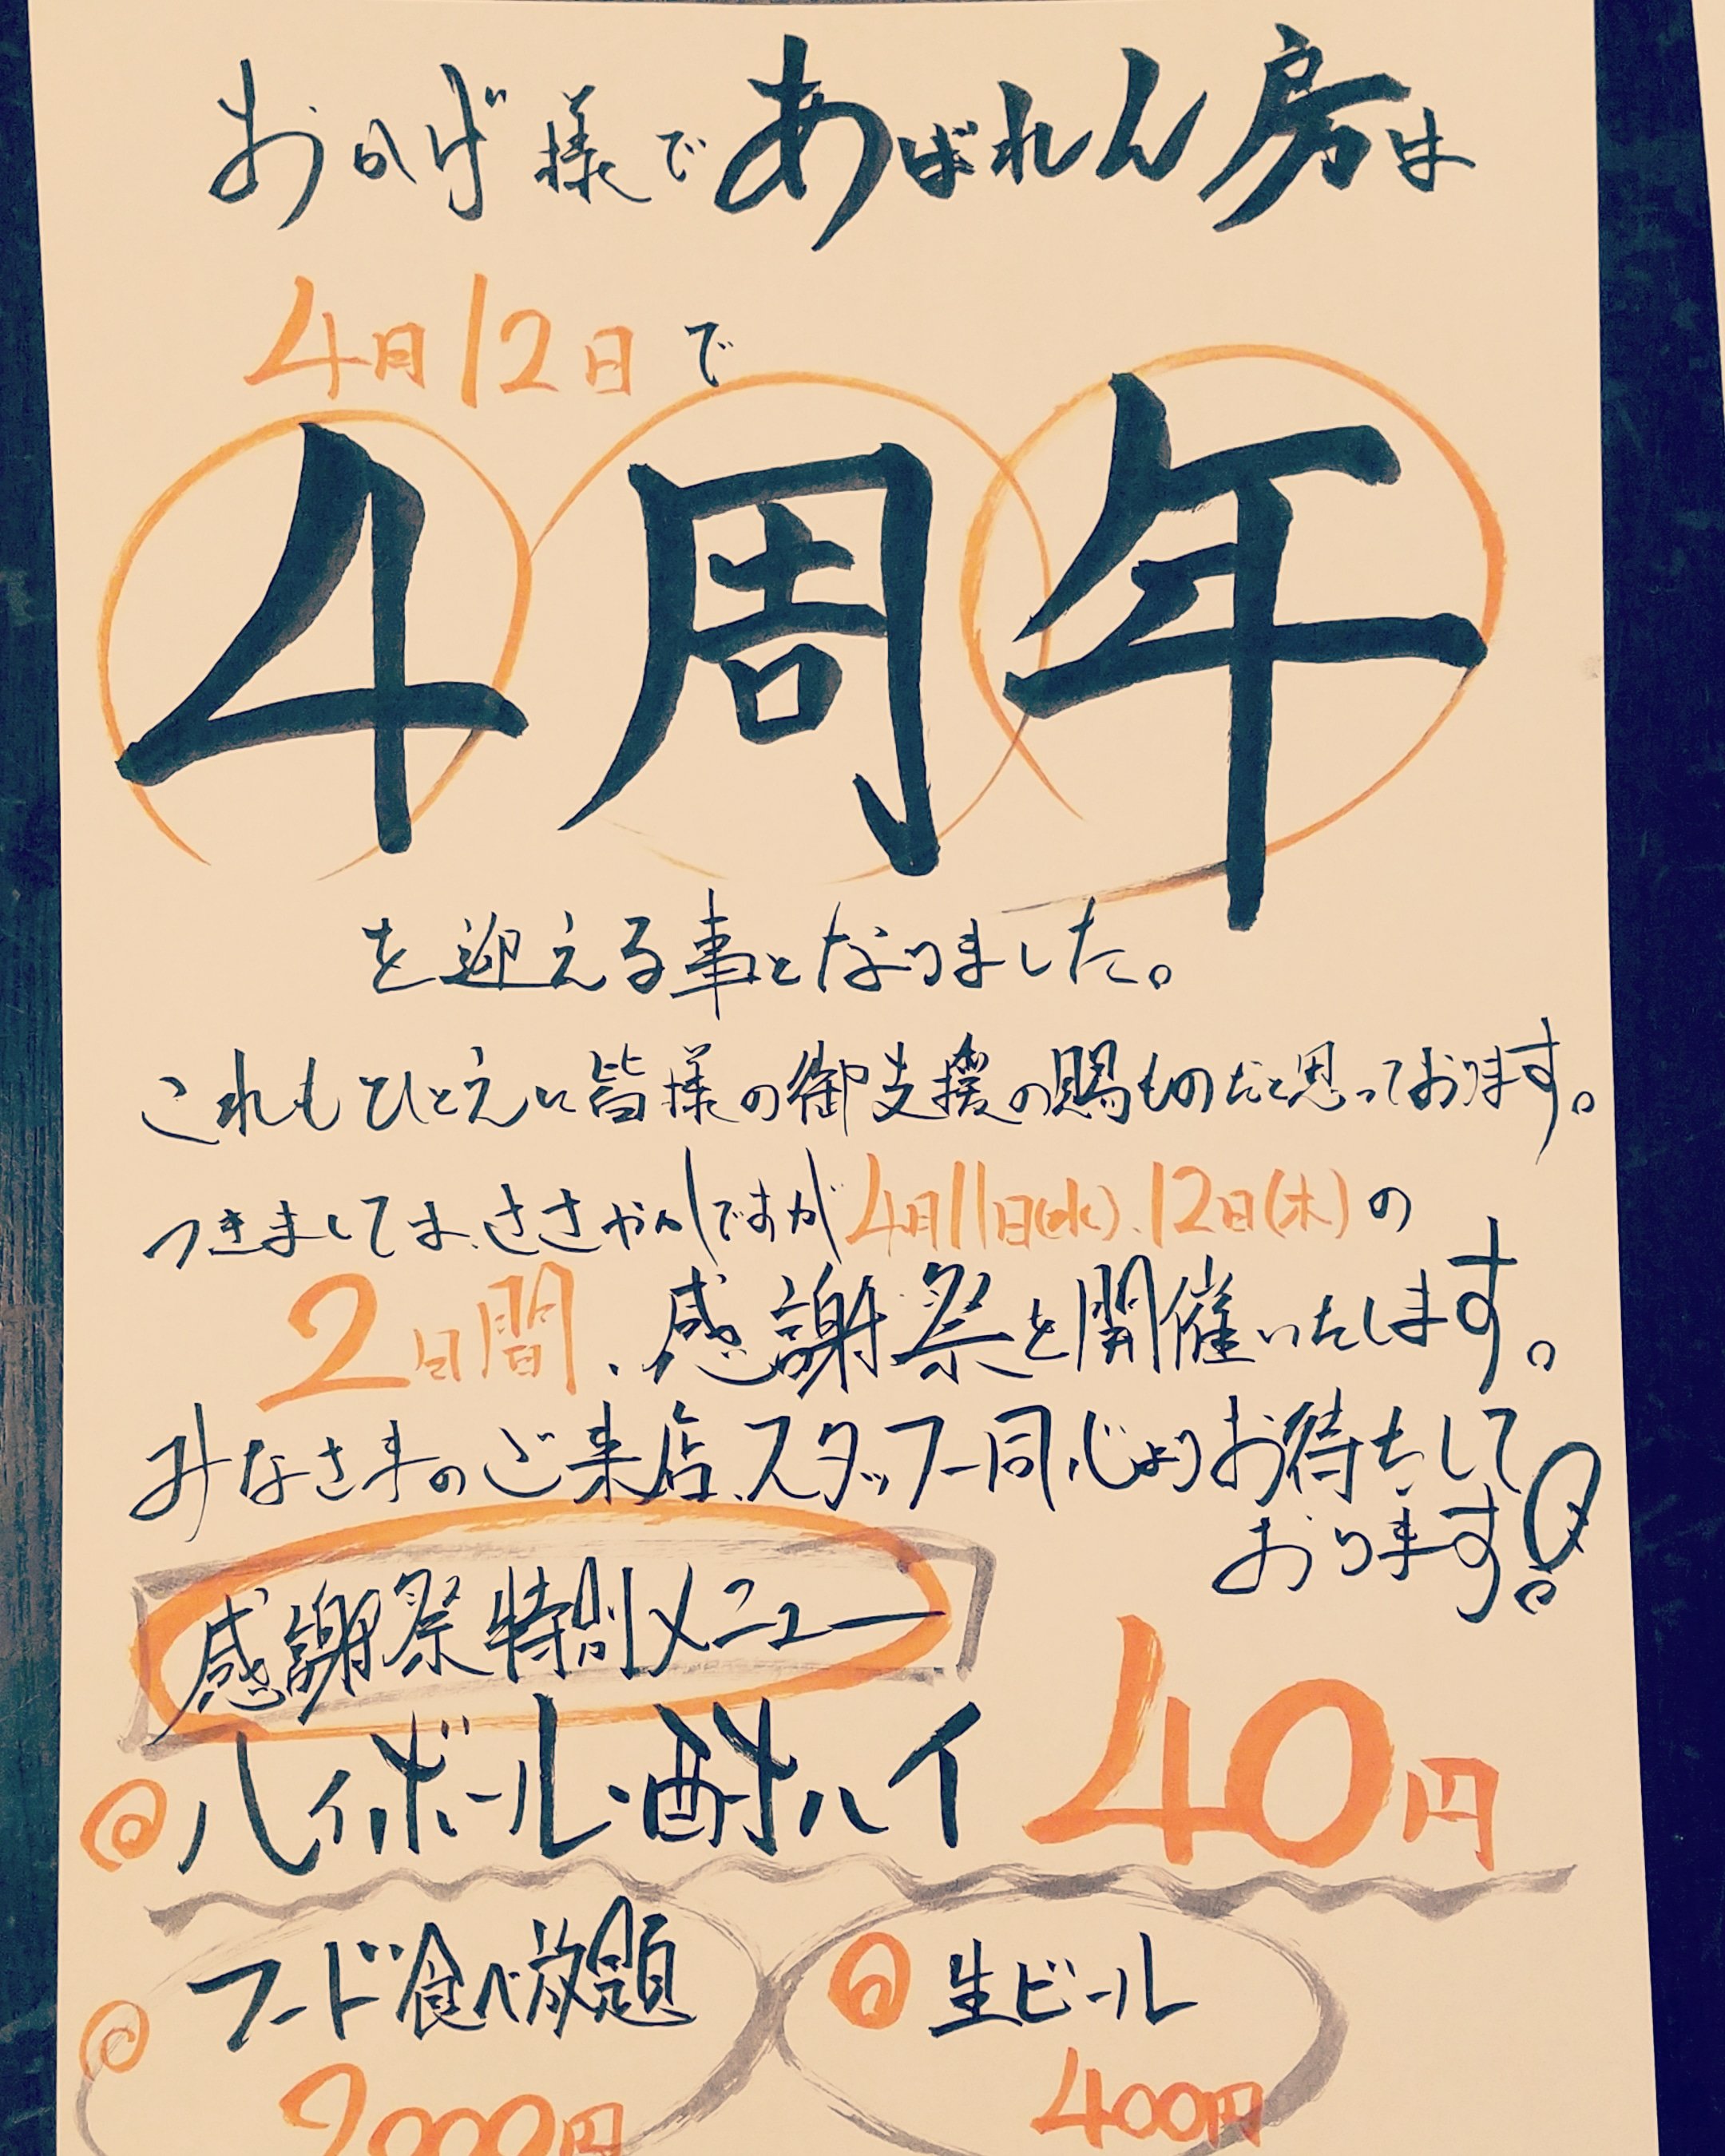 おかげ様であばれん房は
4月12日で
4周年
を迎える事となりました。
これもひとえに皆様の御支援の賜ものだと思っております。
つきましては、ささやかですが4月11日(水)、12日(木)の
2日間、感謝祭を開催いたします。
みなさまのご来店、スタッフ一同心よりお待ちして
おります!
感謝祭特別メニュー
ハイボール・酎ハイ 40円
フード食べ放題
2000円
生ビール
400円